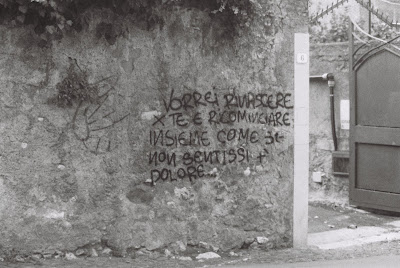 VORREI RINASCERE
X TE E RICOMINCIARE
INSIEME COME SE
NON SENTISSI +
DOLORE...
6